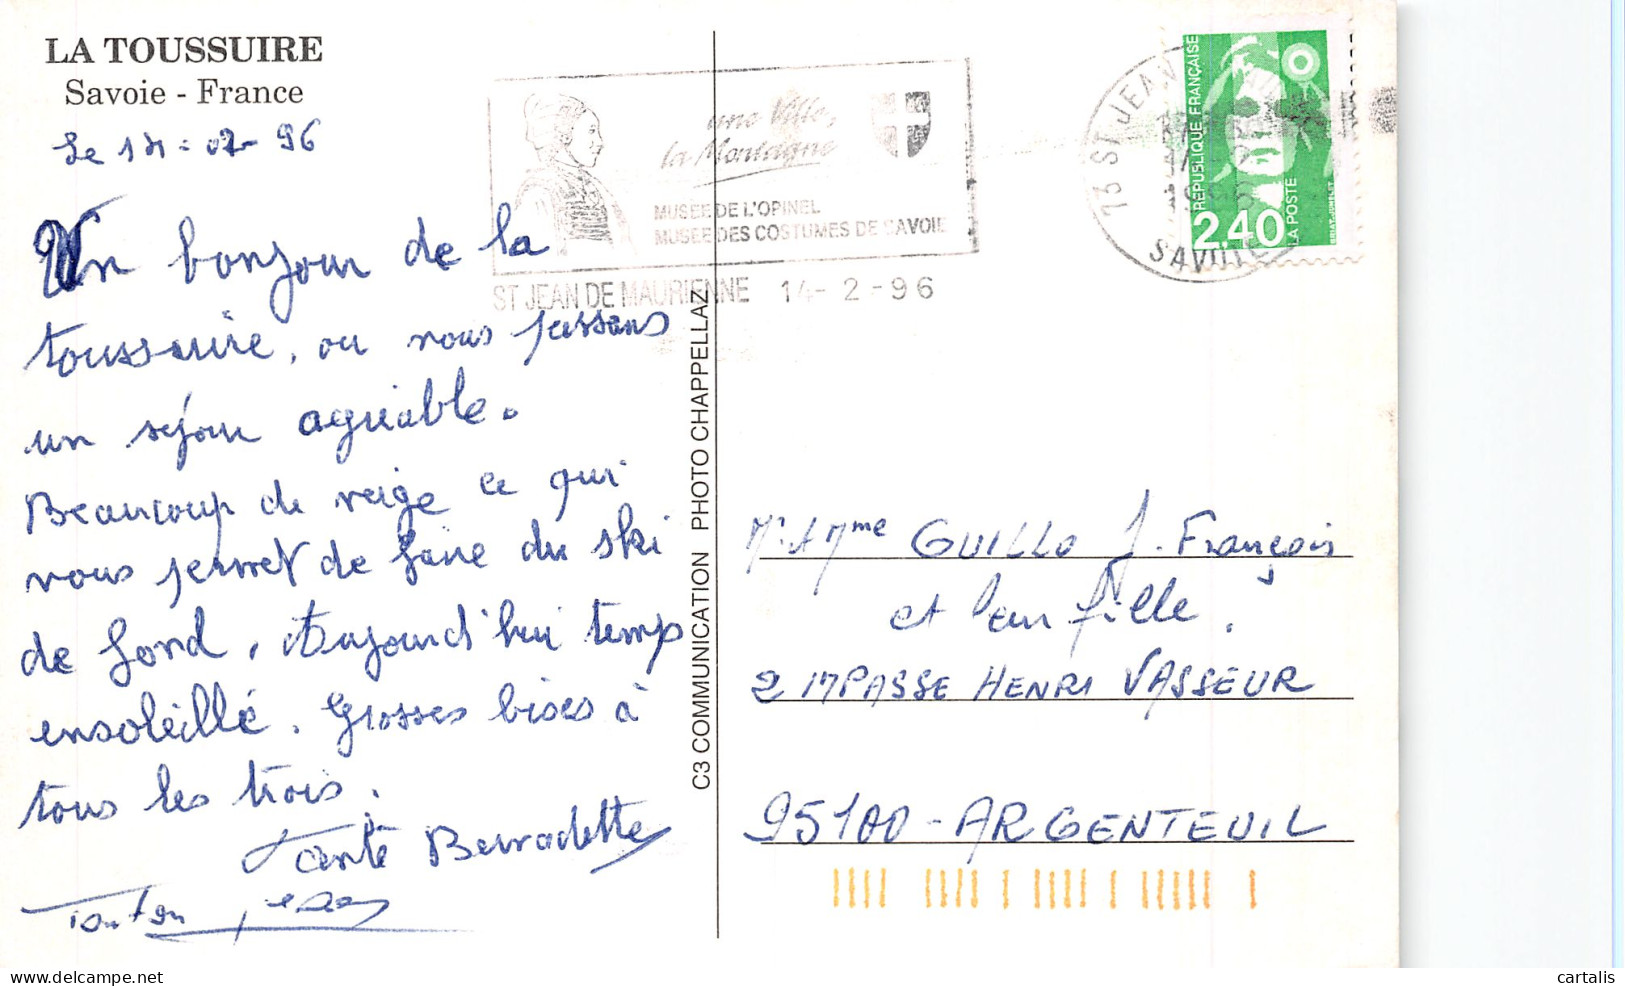 LA TOUSSUIRE
Savoie - France
Le 14-02-96
Un bonjour de la
toussuire, ou nous passons
un séjour agréable.
Beaucoup de neige ce qui
nous permet de faire du ski
de fond, Aujourd'hui temps
ensoleillé. Grosses bises à
tous les trois.
Tante Bernadette
Tonton
C3 COMMUNICATION PHOTO CHAPPELLAZ
une Ville,
la Montagne
MUSEE DE L'OPINEL
MUSEE DES COSTUMES DE SAVOIE
ST JEAN DE MAURIENNE 14-2-96
73 ST JEAN
1996
SAVOIE
REPUBLIQUE FRANÇAISE
2,40
LA POSTE
BRIAT-JUMELET
Mr & Mme GUILLO J. François
et leur fille,
2 IMPASSE HENRI VASSEUR
95100 - ARGENTEUIL
cartalis